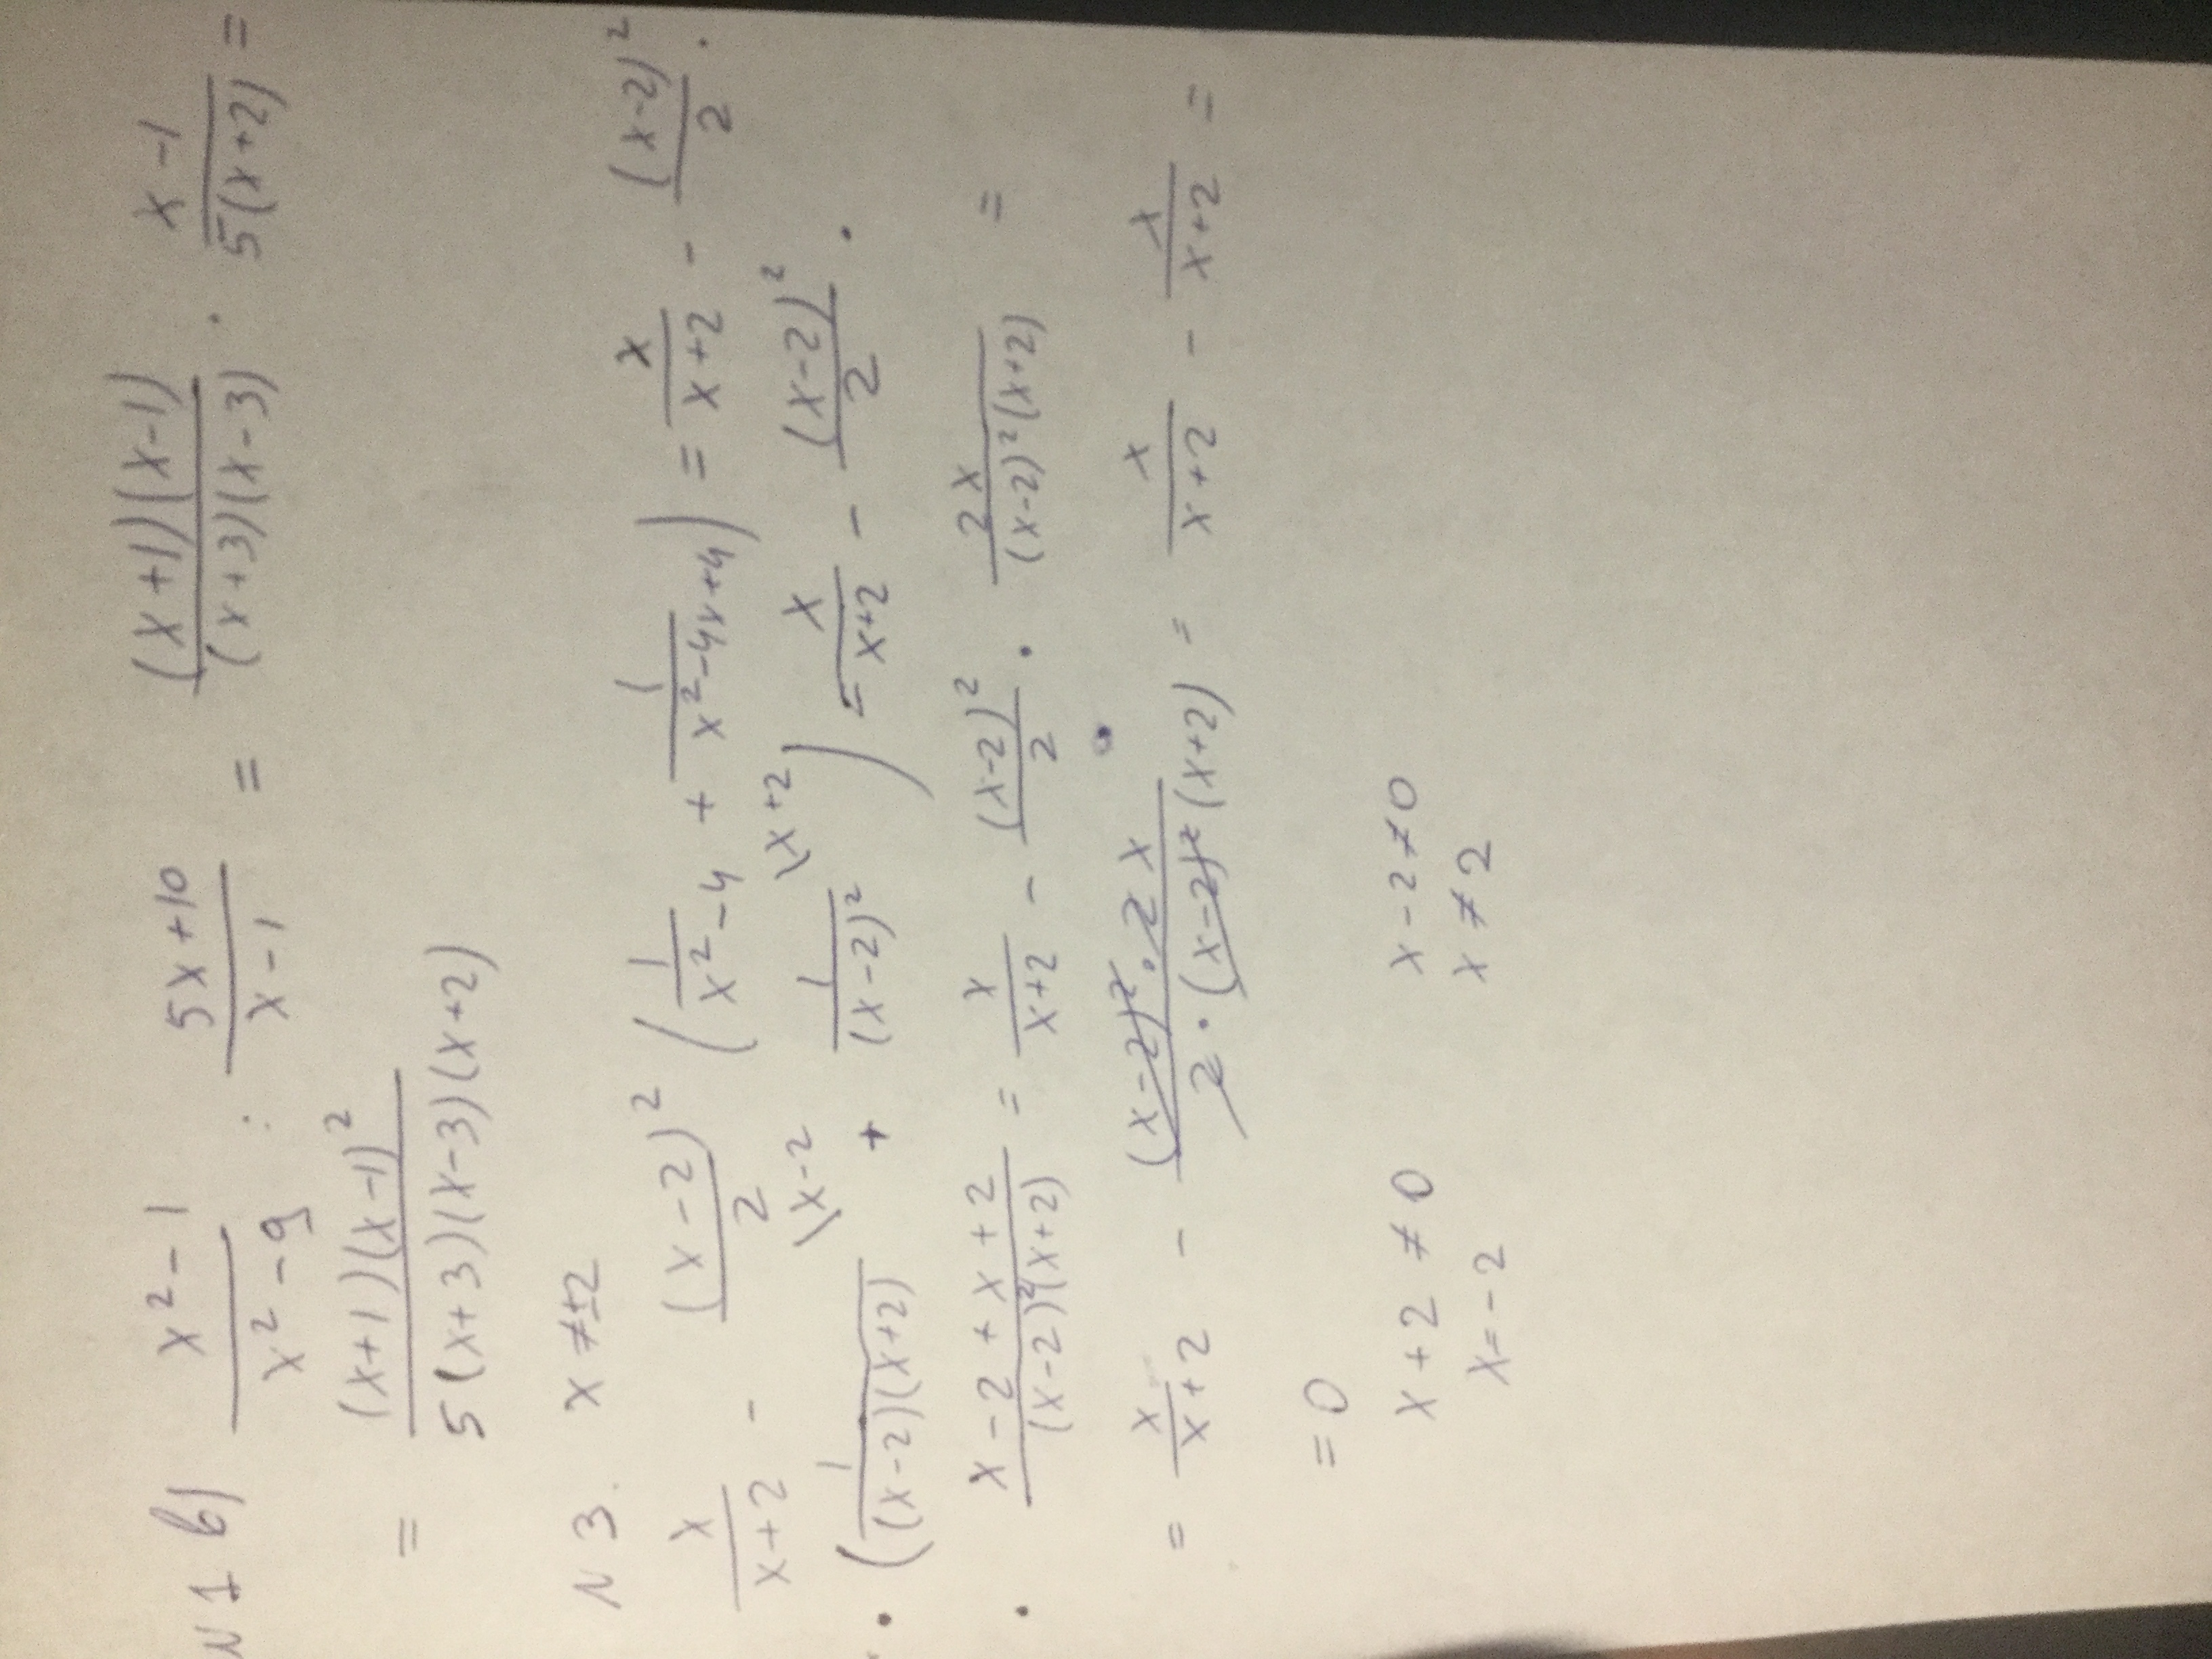 N 1 в) \frac{x^2-1}{x^2-9} : \frac{5x+10}{x-1} = \frac{(x+1)(x-1)}{(x+3)(x-3)} · \frac{x-1}{5(x+2)} =
= \frac{(x+1)(x-1)^2}{5(x+3)(x-3)(x+2)}
N 3. x ≠ ±2
\frac{x}{x+2} - \frac{(x-2)^2}{2} ( \frac{1}{x^2-4} + \frac{1}{x^2-4x+4} ) = \frac{x}{x+2} - \frac{(x-2)^2}{2} ·
· ( \frac{1}{(x-2)(x+2)} \x-2 + \frac{1}{(x-2)^2} \x+2 ) = \frac{x}{x+2} - \frac{(x-2)^2}{2} ·
· \frac{x-2+x+2}{(x-2)^2(x+2)} = \frac{x}{x+2} - \frac{(x-2)^2}{2} · \frac{2x}{(x-2)^2(x+2)} =
= \frac{x}{x+2} - \frac{(x-2)^2·2x}{2·(x-2)^2(x+2)} = \frac{x}{x+2} - \frac{x}{x+2} =
= 0
x+2 ≠ 0 x-2 ≠ 0
x = -2 x ≠ 2